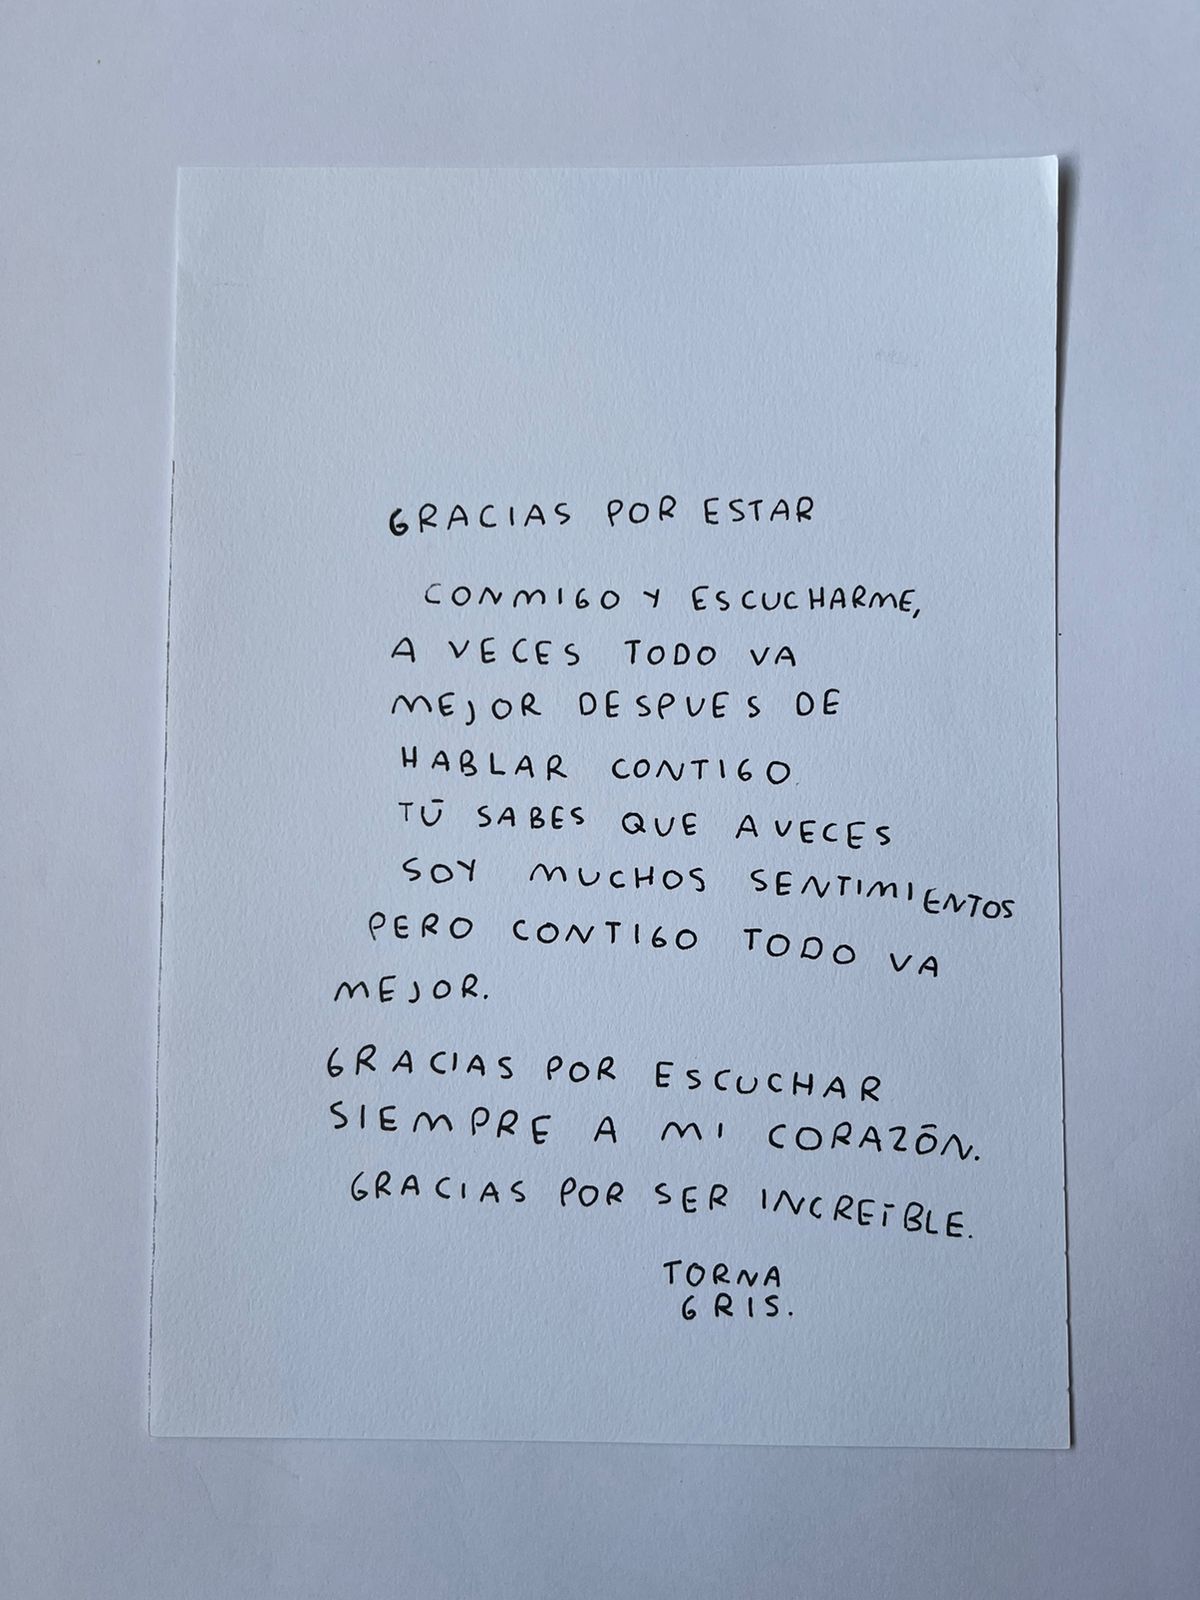 GRACIAS POR ESTAR
CONMIGO Y ESCUCHARME,
A VECES TODO VA
MEJOR DESPUES DE
HABLAR CONTIGO.
TŪ SABES QUE A VECES
SOY MUCHOS SENTIMIENTOS
PERO CONTIGO TODO VA
MEJOR.
GRACIAS POR ESCUCHAR
SIEMPRE A MI CORAZŌN.
GRACIAS POR SER INCREĪBLE.
TORNA
GRIS.